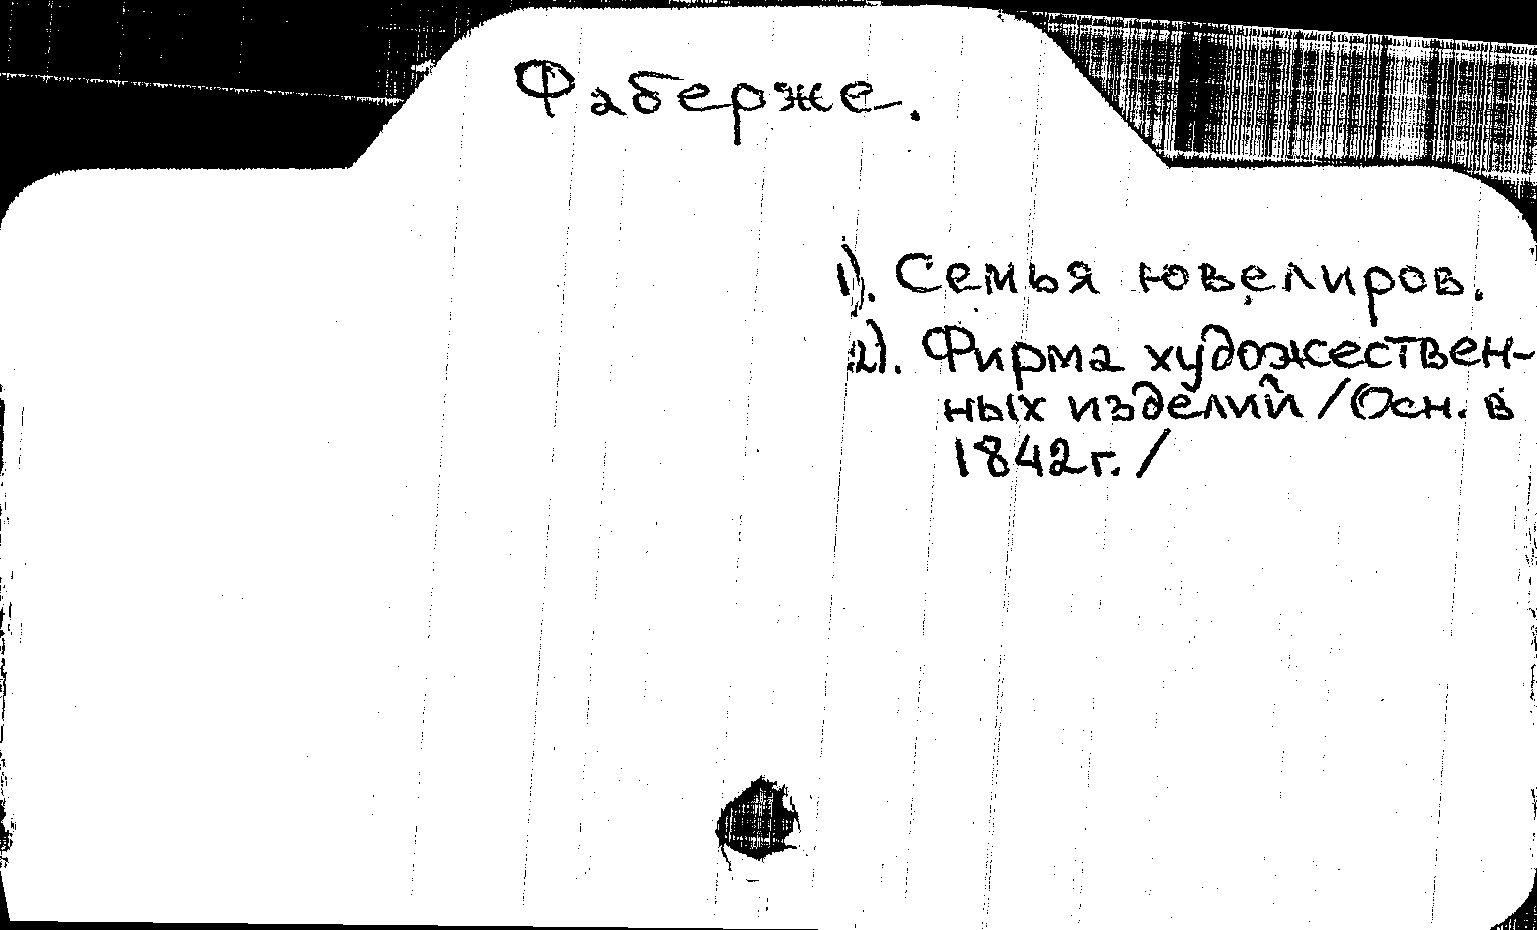 Фаберже.
1). Семья ювелиров.
2). Фирма художествен-
ных изделий /Осн. в
1842г./